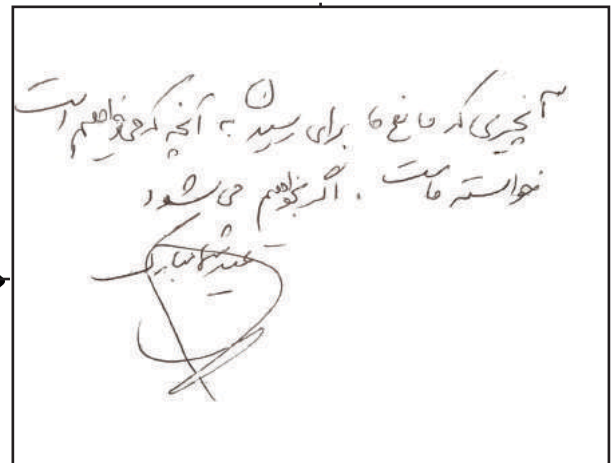 آنچیزی که مانع ما برای رسیدن به آنچه که می‌خواهیم است
خواسته ماست . اگر بخواهیم می‌شود
عید شما مبارک